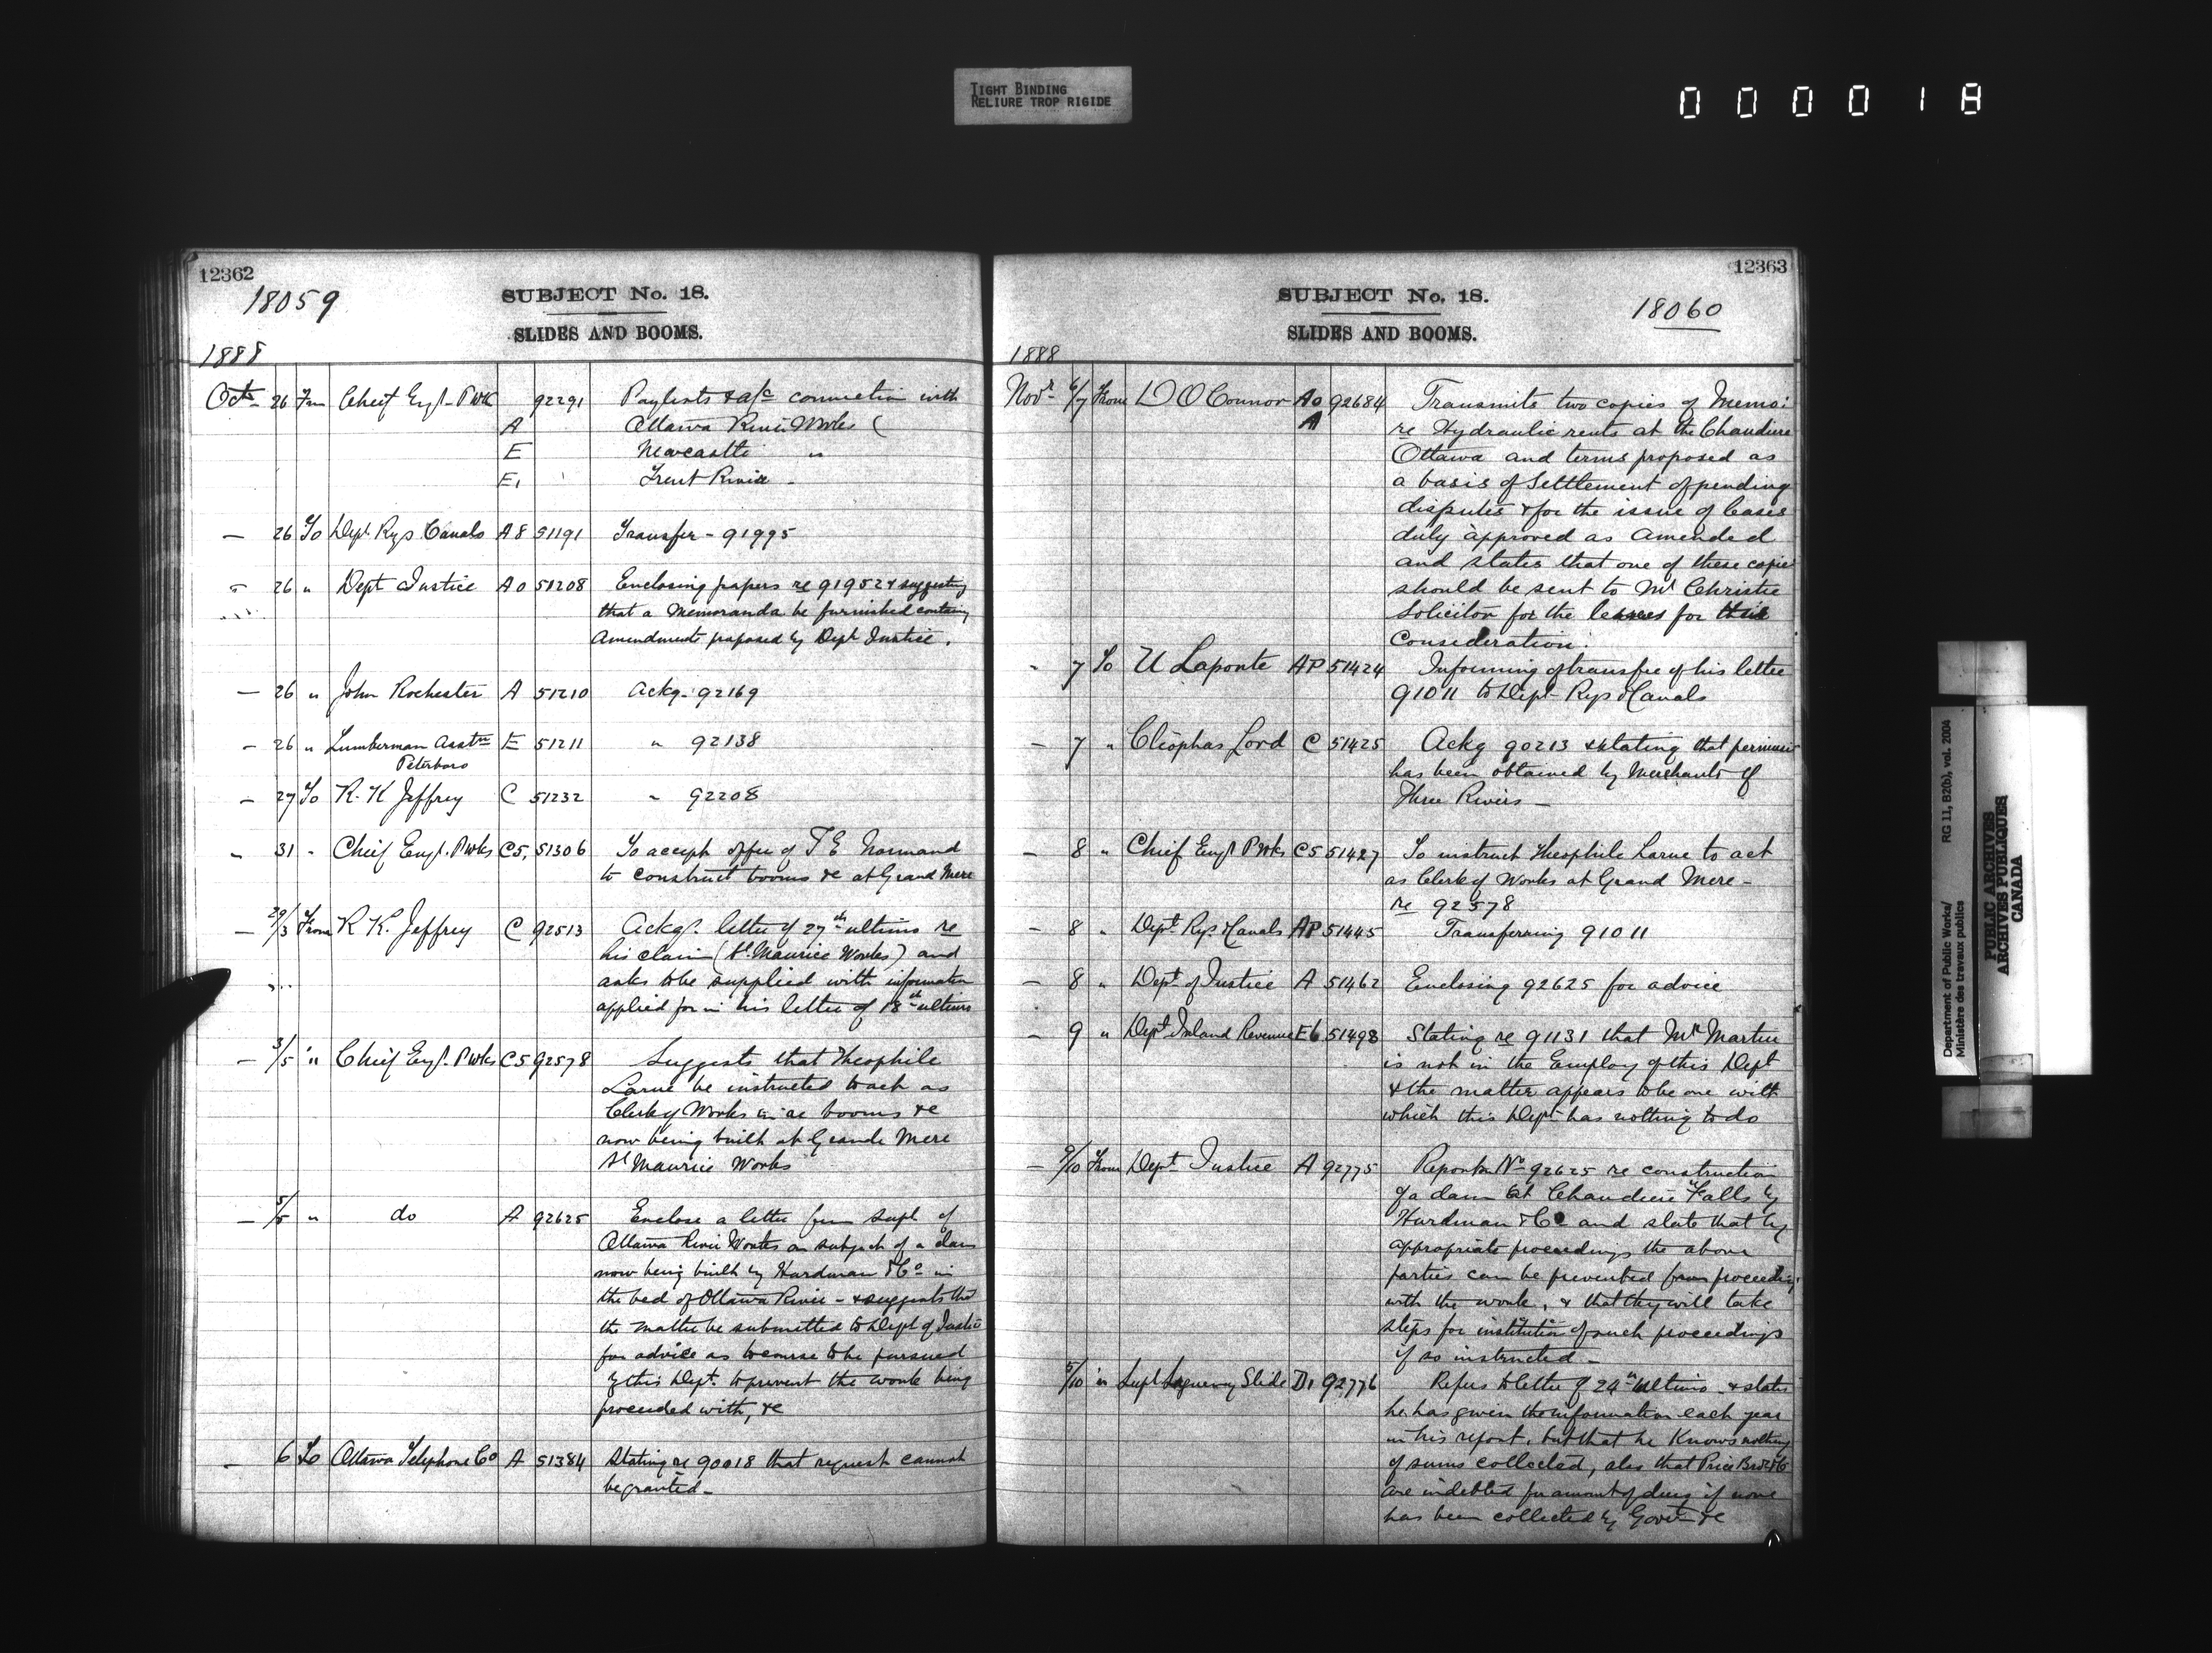 TIGHT BINDING
RELIURE TROP RIGIDE
0 0 0 0 1 8
12362
18059
SUBJECT No. 18.
SLIDES AND BOOMS.
1888
Oct 26 From Chief Engr P Wk 92291 Paylists & a/c connection with
A Ottawa River Works (
E Newcastle "
E1 Trent River -
— 26 To Dept Rys Canals A8 51191 Transfer - 91995
- 26 " Dept Justice A0 51208 Enclosing papers re 91952 & suggesting
that a Memoranda be furnished containing
Amendments proposed by Dept Justice.
— 26 " John Rochester A 51210 Ackg - 92169
- 26 " Lumberman Asstn E 51211 " 92138
Peterboro
- 27 To R. K Jeffrey C 51232 " 92208
" 31 " Chief Engr. P Wks C5, 51306 To accept offer of T E Normand
to construct booms &c at Grand Mere
— 29/3 From R K. Jeffrey C 92513 Ackgs. letter of 27th ultimo re
his claim (St. Maurice Works) and
asks to be supplied with information
applied for in his letter of 18th ultimo
— 3/5 " Chief Engr. P Wks C5 92578 Suggests that Theophile
Larue be instructed to act as
Clerk of Works in re booms &c
now being built at Grande Mere
St Maurice Works
— 5/5 " do A 92625 Enclose a letter from Supt of
Ottawa River Works on subject of a dam
now being built by Hurdman & Co in
the bed of Ottawa River - & suggests that
the matter be submitted to Dept of Justice
for advice as to course to be pursued
by this Dept. to prevent the work being
proceeded with, &c
- 6 To Ottawa Telephone Co A 51384 Stating re 90018 that request cannot
be granted -
12363
SUBJECT No. 18.
18060
SLIDES AND BOOMS.
1888
Novr 6/7 From D O Connor A0 92684 Transmits two copies of Memo:
A re Hydraulic rents at the Chaudiere
Ottawa and terms proposed as
a basis of Settlement of pending
disputes & for the issue of leases
duly approved as Amended
and states that one of these copies
should be sent to Mr Christie
Solicitor for the lessees for their
Consideration.
- 7 To U Laponte AP 51424 Informing of transfer of his letter
91011 to Dept Rys & Canals
— 7 " Cléophas Lord C 51425 Ackg 90213 & stating that permission
has been obtained by Merchants of
Three Rivers —
— 8 " Chief Engr P Wks C5 51427 To instruct Theophile Larue to act
as Clerk of Works at Grand Mere -
re 92578
— 8 " Dept Rys. & Canals AP 51445 Transferring 91011
— 8 " Dept of Justice A 51462 Enclosing 92625 for advice
— 9 " Dept Inland Revenue E6 51498 Stating re 91131 that Mr Martin
is not in the Employ of this Dept
& the matter appears to be one with
which this Dept has nothing to do
— 9/10 From Dept Justice A 92775 Reports No 92625 re construction
of a dam at Chaudiere Falls by
Hurdman & Co and state that by
appropriate proceedings the above
parties can be prevented from proceeding
with the work, & that they will take
steps for institution of such proceedings
if so instructed —
5/10 " Supt Saguenay Slide D1 92776 Refers to letter of 24th ultimo & states
he has given the information each year
in his report, but that he Knows nothing
of sums collected, also that Price Bros & Co
are indebted for amount of dues if none
has been collected by Govt &c
Department of Public Works/ RG 11, B2(b), vol. 2004
Ministère des travaux publics
PUBLIC ARCHIVES
ARCHIVES PUBLIQUES
CANADA